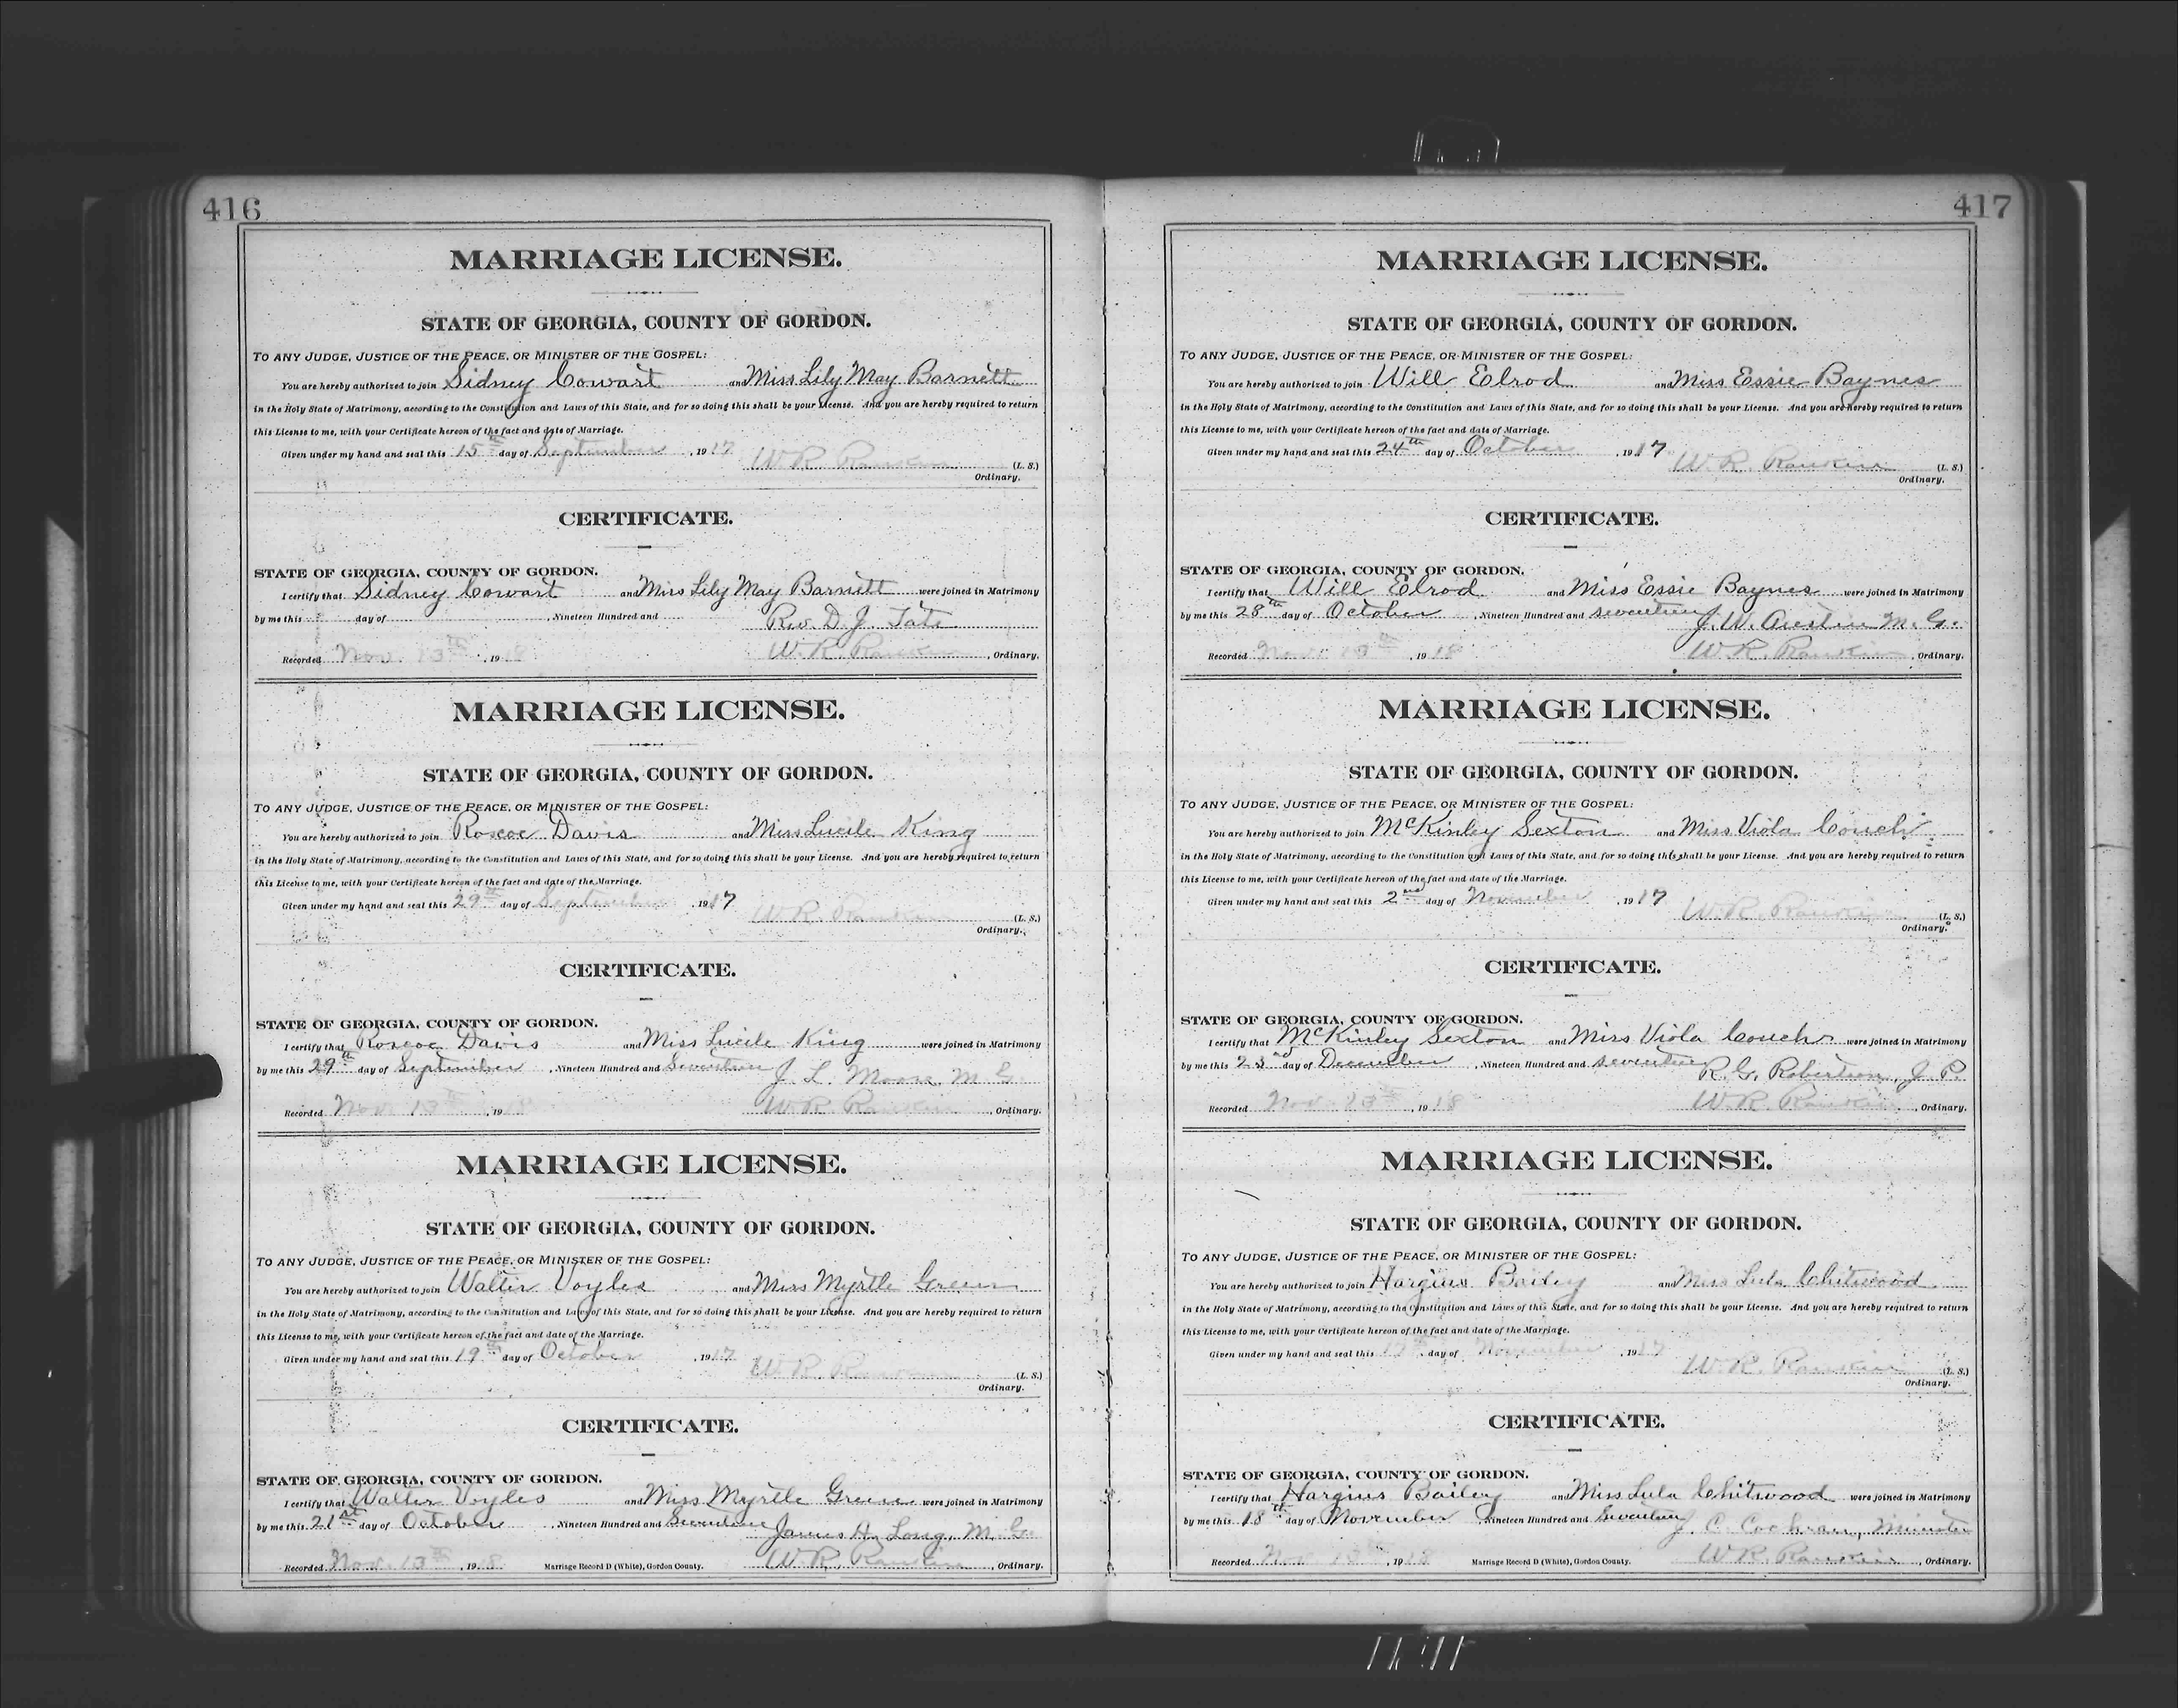 416
MARRIAGE LICENSE.
STATE OF GEORGIA, COUNTY OF GORDON.
TO ANY JUDGE, JUSTICE OF THE PEACE, OR MINISTER OF THE GOSPEL:
You are hereby authorized to join Sidney Cowart and Miss Lily May Barnett
in the Holy State of Matrimony, according to the Constitution and Laws of this State, and for so doing this shall be your License. And you are hereby required to return
this License to me, with your Certificate hereon of the fact and date of Marriage.
Given under my hand and seal this 15th day of September, 1917 W R Rankin (L. S.)
Ordinary.
CERTIFICATE.
STATE OF GEORGIA, COUNTY OF GORDON.
I certify that Sidney Cowart and Miss Lily May Barnett were joined in Matrimony
by me this day of , Nineteen Hundred and Rev. D. J. Tate
Recorded Nov. 13th, 1918 W. R. Rankin, Ordinary.
MARRIAGE LICENSE.
STATE OF GEORGIA, COUNTY OF GORDON.
TO ANY JUDGE, JUSTICE OF THE PEACE, OR MINISTER OF THE GOSPEL:
You are hereby authorized to join Roscoe Davis and Miss Lucile King
in the Holy State of Matrimony, according to the Constitution and Laws of this State, and for so doing this shall be your License. And you are hereby required to return
this License to me, with your Certificate hereon of the fact and date of the Marriage.
Given under my hand and seal this 29th day of September, 1917 W R. Rankin (L. S.)
Ordinary.
CERTIFICATE.
STATE OF GEORGIA, COUNTY OF GORDON.
I certify that Roscoe Davis and Miss Lucile King were joined in Matrimony
by me this 29th day of September, Nineteen Hundred and Seventeen J. L. Moore, M G.
Recorded Nov 13th, 1918 W R Rankin, Ordinary.
MARRIAGE LICENSE.
STATE OF GEORGIA, COUNTY OF GORDON.
TO ANY JUDGE, JUSTICE OF THE PEACE, OR MINISTER OF THE GOSPEL:
You are hereby authorized to join Walter Voyles and Miss Myrtle Green
in the Holy State of Matrimony, according to the Constitution and Laws of this State, and for so doing this shall be your License. And you are hereby required to return
this License to me, with your Certificate hereon of the fact and date of the Marriage.
Given under my hand and seal this 19th day of October, 1917 W. R. Rankin (L. S.)
Ordinary.
CERTIFICATE.
STATE OF GEORGIA, COUNTY OF GORDON.
I certify that Walter Voyles and Miss Myrtle Green were joined in Matrimony
by me this 21st day of October, Nineteen Hundred and Seventeen James A. Long, M. G.
Recorded Nov. 13th, 1918 Marriage Record D (White), Gordon County. W. R. Rankin, Ordinary.
417
MARRIAGE LICENSE.
STATE OF GEORGIA, COUNTY OF GORDON.
TO ANY JUDGE, JUSTICE OF THE PEACE, OR MINISTER OF THE GOSPEL:
You are hereby authorized to join Will Elrod and Miss Essie Baynes
in the Holy State of Matrimony, according to the Constitution and Laws of this State, and for so doing this shall be your License. And you are hereby required to return
this License to me, with your Certificate hereon of the fact and date of Marriage.
Given under my hand and seal this 24th day of October, 1917 W. R. Rankin (L. S.)
Ordinary.
CERTIFICATE.
STATE OF GEORGIA, COUNTY OF GORDON.
I certify that Will Elrod and Miss Essie Baynes were joined in Matrimony
by me this 28th day of October, Nineteen Hundred and seventeen J. W. Austin M. G.
Recorded Nov. 13th, 1918 W. R. Rankin, Ordinary.
MARRIAGE LICENSE.
STATE OF GEORGIA, COUNTY OF GORDON.
TO ANY JUDGE, JUSTICE OF THE PEACE, OR MINISTER OF THE GOSPEL:
You are hereby authorized to join McKinley Sexton and Miss Viola Couch
in the Holy State of Matrimony, according to the Constitution and Laws of this State, and for so doing this shall be your License. And you are hereby required to return
this License to me, with your Certificate hereon of the fact and date of the Marriage.
Given under my hand and seal this 2nd day of November, 1917 W. R. Rankin (L. S.)
Ordinary.
CERTIFICATE.
STATE OF GEORGIA, COUNTY OF GORDON.
I certify that McKinley Sexton and Miss Viola Couch were joined in Matrimony
by me this 23rd day of December, Nineteen Hundred and seventeen R. G. Robertson, J. P.
Recorded Nov. 13th, 1918 W. R. Rankin, Ordinary.
MARRIAGE LICENSE.
STATE OF GEORGIA, COUNTY OF GORDON.
TO ANY JUDGE, JUSTICE OF THE PEACE, OR MINISTER OF THE GOSPEL:
You are hereby authorized to join Hargius Bailey and Miss Lula Chitwood
in the Holy State of Matrimony, according to the Constitution and Laws of this State, and for so doing this shall be your License. And you are hereby required to return
this License to me, with your Certificate hereon of the fact and date of the Marriage.
Given under my hand and seal this 17th day of November, 1917 W. R. Rankin (L. S.)
Ordinary.
CERTIFICATE.
STATE OF GEORGIA, COUNTY OF GORDON.
I certify that Hargius Bailey and Miss Lula Chitwood were joined in Matrimony
by me this 18th day of November, Nineteen Hundred and Seventeen J. C. Cochran, Minister
Recorded Nov 13th, 1918 Marriage Record D (White), Gordon County. W R. Rankin, Ordinary.